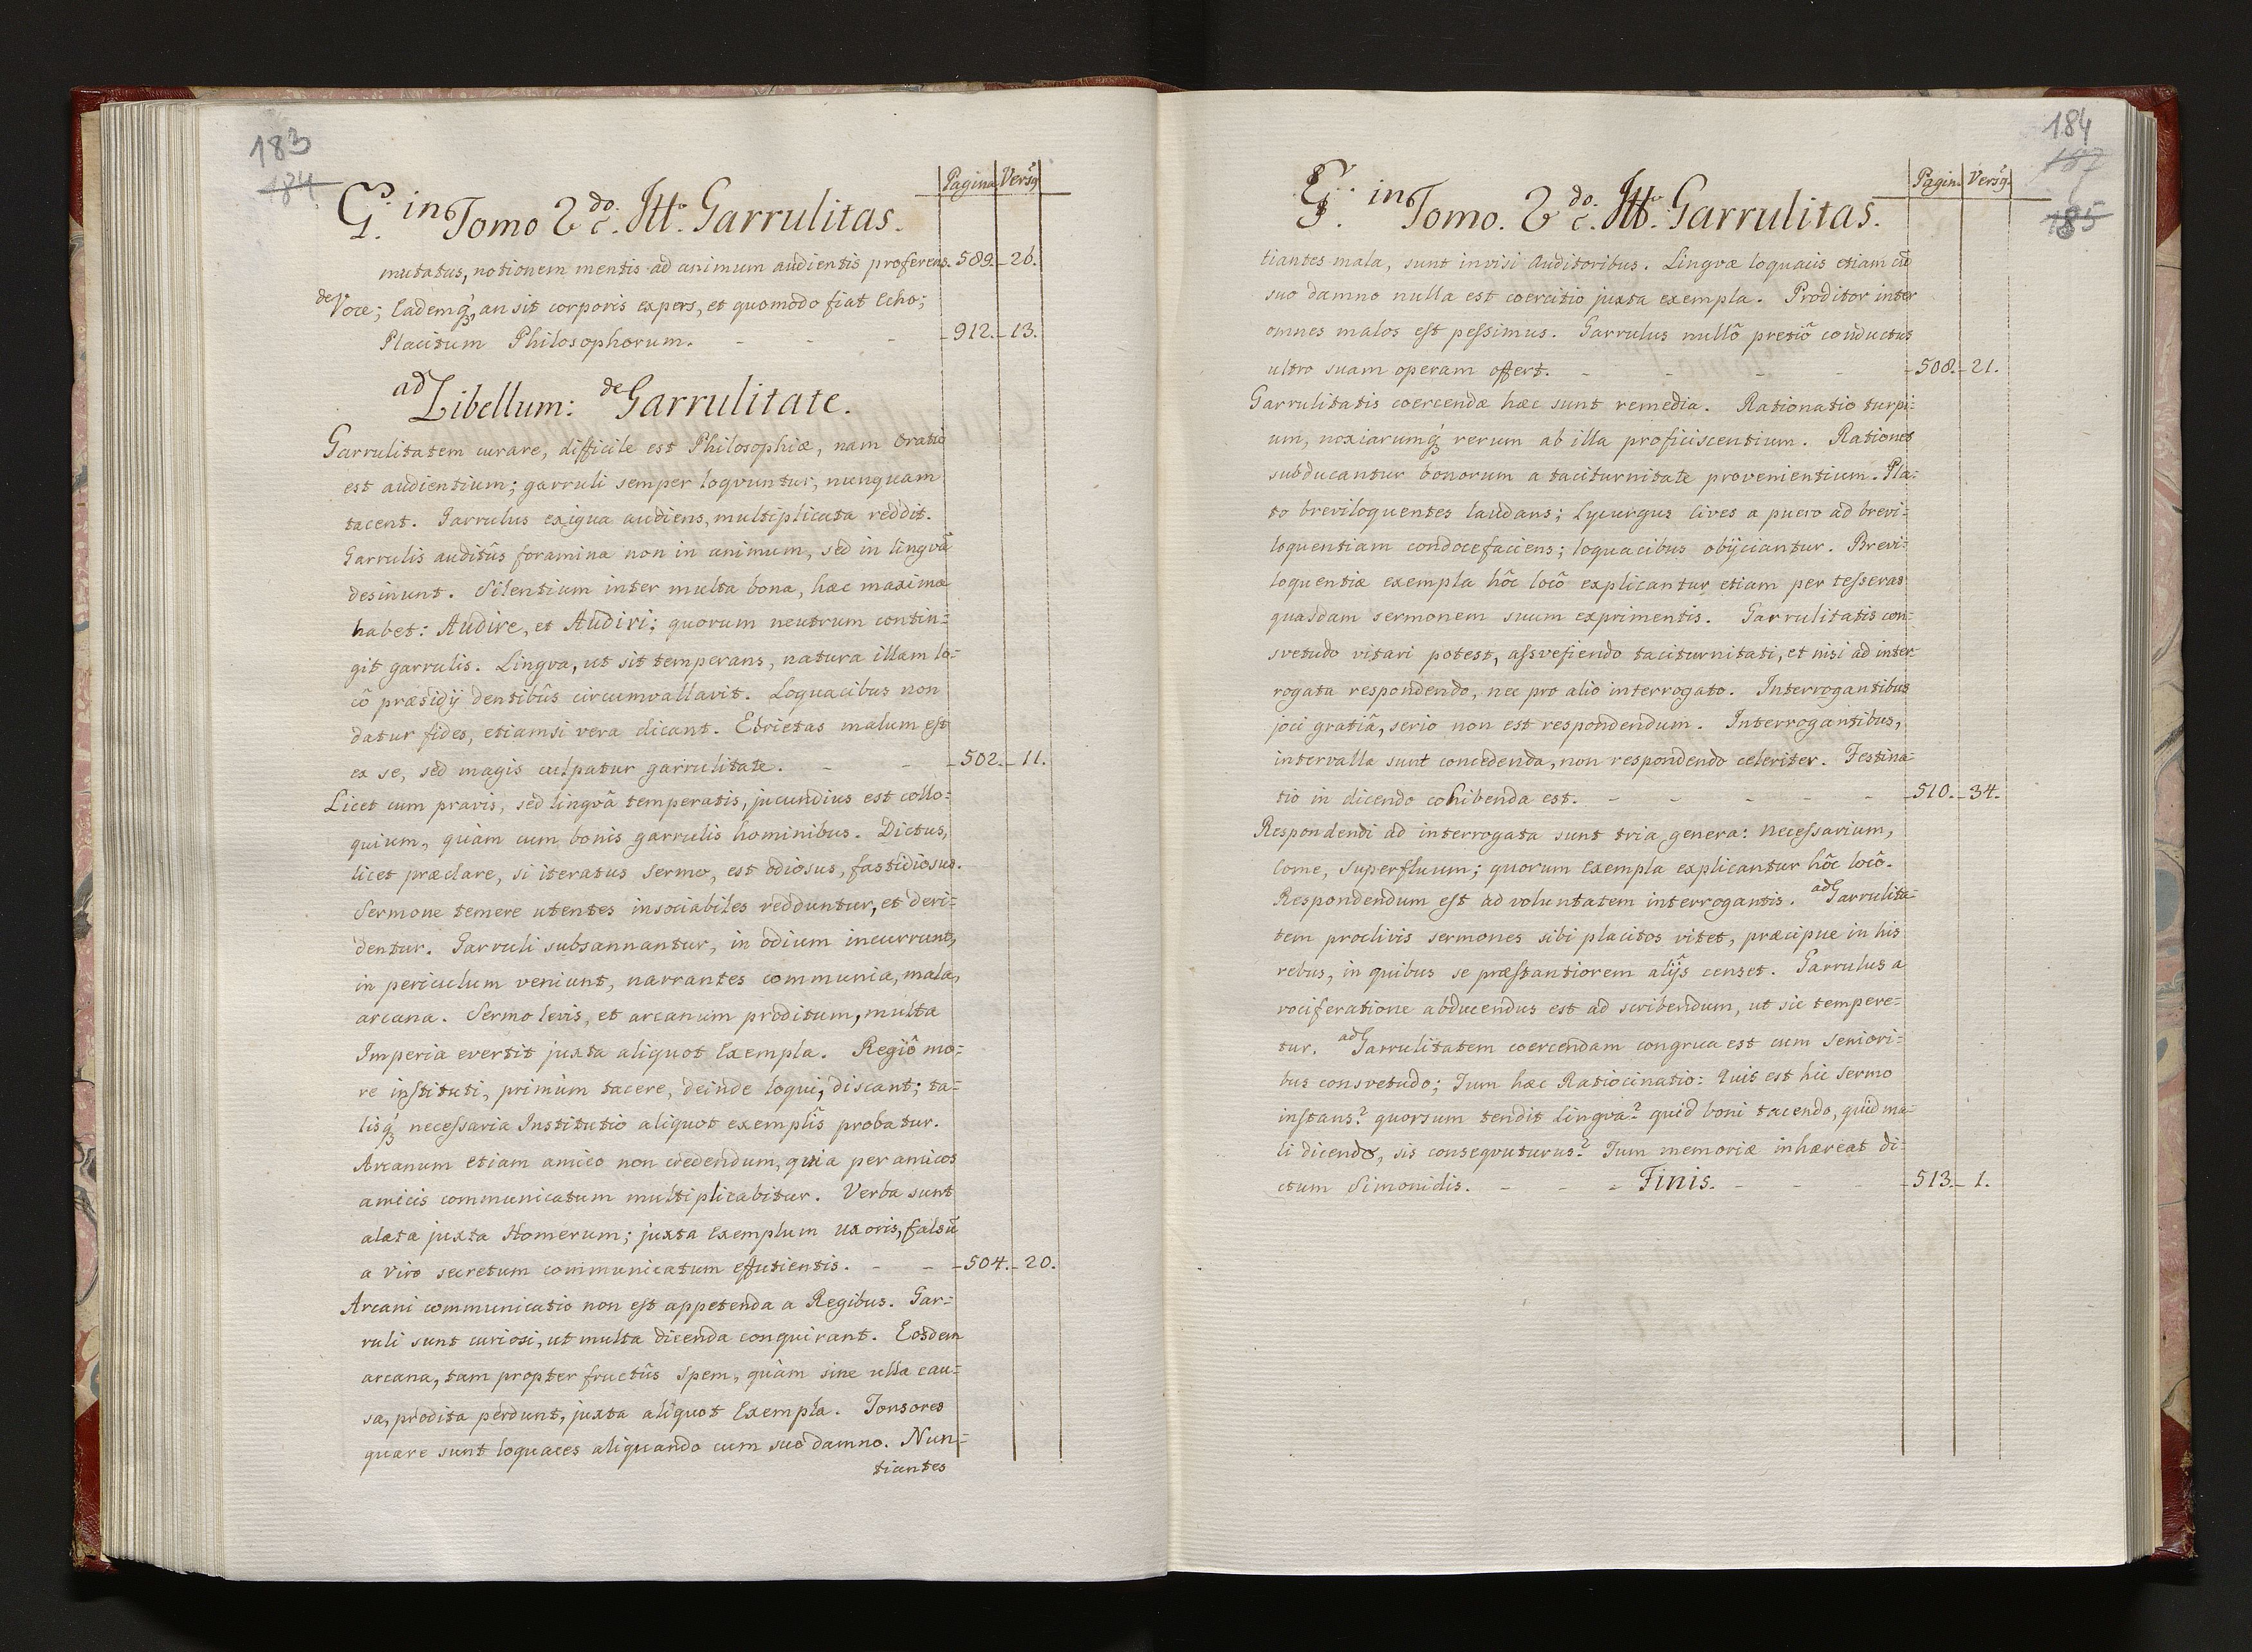 183
184
Pagina Versq
G. in Tomo 2do. c. Ttt. Garrulitas.
mutatus, notionem mentis ad animum audientis proferens. 589. 26.
de Voce; Eademq́ʒ, an sit corporis expers, et quomodo fiat Echo;
Placitum Philosophorum. - - - 912. 13.
ad Libellum: de Garrulitate.
Garrulitatem curare, difficile est Philosophiæ, nam Oratio
est audientium; garruli semper loqvuntur, nunquam
tacent. Garrulus exigua audiens, multiplicata reddit.
Garrulis auditûs foramina non in animum, sed in lingvã
desinunt. Silentium inter multa bona, hæc maxima
habet: Audire, et Audiri; quorum neutrum contin=
git garrulis. Lingva, ut sit temperans, natura illam lo=
cô præsidÿ dentibûs circumvallavit. Loquacibus non
datur fides, etiamsi vera dicant. Ebrietas malum est
ex se, sed magis culpatur garrulitate. - - 502. 11.
Licet cum pravis, sed lingvâ temperatis, jucundius est collo=
quium, quàm cum bonis garrulis hominibus. Dictus,
licet præclare, si iteratus Sermo, est odiosus, fastidiosus.
Sermone temere utentes insociabiles redduntur, et deri=
dentur. Garruli subsannantur, in odium incurrunt,
in periculum veniunt, narrantes communia, mala,
arcana. Sermo levis, et arcanum proditum, multa
Imperia evertit juxta aliquot Exempla. Regiô mo=
re instituti, primùm tacere, deinde loqui, discant; ta=
lisq́ʒ necessaria Institutio aliquot exemplis probatur.
Arcanum etiam amico non credendum, quia per amicos
amicis communicatum multiplicabitur. Verba sunt
alata juxta Homerum; juxta Exemplum uxoris, falsũ
a Viro secretum communicatum effutientis. - - 504. 20.
Arcani communicatio non est appetenda a Regibus. Gar=
ruli sunt curiosi, ut multa dicenda conquirant. Eosdem
arcana, tam propter fructûs Spem, quàm sine ulla cau=
sa, prodita perdunt, juxta aliquot Exempla. Tonsores
quare sunt loquaces aliquando cum suo damno. Nun=
tiantes
184
187
185
Pagin. Versq.
G. in Tomo. 2do. c. Ttt. Garrulitas.
tiantes mala, sunt invisi Auditoribus. Lingvæ loquacis etiam cũ
suo damno nulla est coercitio juxta exempla. Proditor inter
omnes malos est pessimus. Garrulus nullô pretiô conductus
ultro suam operam offert. - - - - 508. 21.
Garrulitatis coercendæ hæc sunt remedia. Rationatio turpi=
um, noxiarumq́ʒ rerum ab illa proficiscentium. Rationes
subducantur bonorum a taciturnitate provenientium. Pla=
to breviloquentes laudans; Lycurgus Cives a puero ad brevi=
loquentiam condocefaciens; loquacibus obÿciantur. Brevi=
loquentiæ exempla hôc locô explicantur etiam per tesseras
quasdam sermonem suum exprimentis. Garrulitatis con=
svetudo vitari potest, assvefiendo taciturnitati, et nisi ad inter=
rogata respondendo, nec pro alio interrogato. Interrogantibus
joci gratiâ, serio non est respondendum. Interrogantibus,
intervalla sunt concedenda, non respondendo celeriter. Festina=
tio in dicendo cohibenda est. - - - - - 510. 34.
Respondendi ad interrogata sunt tria genera: Necessarium,
Come, Superfluum; quorum Exempla explicantur hôc locô.
Respondendum est ad voluntatem interrogantis. ad Garrulita=
tem proclivis sermones sibi placitos vitet, præcipue in his
rebus, in quibus se præstantiorem alÿs censet. Garrulus a
vociferatione abducendus est ad scribendum, ut sic tempere=
tur. ad Garrulitatem coercendam congrua est cum Seniori=
bus consvetudo; Tum hæc Ratiocinatio: Quis est hic Sermo
instans? quorsum tendit Lingva? quid boni tacendo, quid ma=
li dicendo, sis conseqvuturus? Tum memoriæ inhæreat di=
ctum Simonidis. - - - Finis. - - - 513. 1.